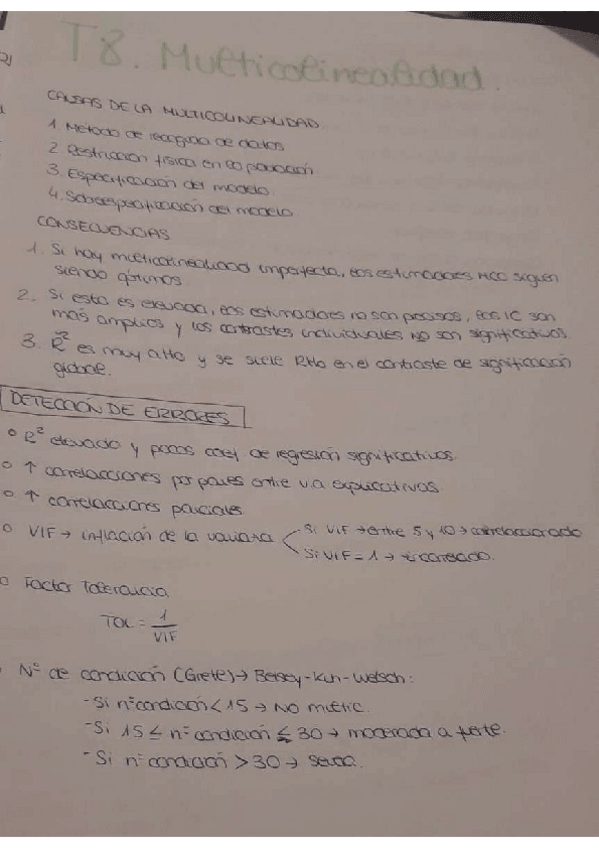 T8. Multicolinealidad.
CAUSAS DE LA MULTICOLINEALIDAD.
1 Método de recogida de datos
2 Restricción física en la población
3. Especificación del modelo.
4. Sobreespecificación del modelo
CONSECUENCIAS
1. Si hay multicolinealidad imperfecta, los estimadores MCO siguen
siendo óptimos
2. Si esta es elevada, los estimadores no son precisos, los IC son
más amplios y los contrastes individuales NO son significativos
3. R̄² es muy alto y se suele RHo en el contraste de significación
global.
DETECCIÓN DE ERRORES
º R² elevado y pocos coef. de regresión significativos.
º ↑ correlacciones por pares entre v.a explicativas
º ↑ correlacciones parciales
º VIF → inflación de la varianza
Si VIF → entre 5 y 10 → correlacionado
Si VIF = 1 →
º Factor Tolerancia
TOL = 1/VIF
Nº de condición (Gretl) → Belsey-Kuh-Welsch:
- Si nº condición < 15 → NO multic.
- Si 15 ≤ nº condición ≤ 30 → moderada a fuerte.
- Si nº condición > 30 →